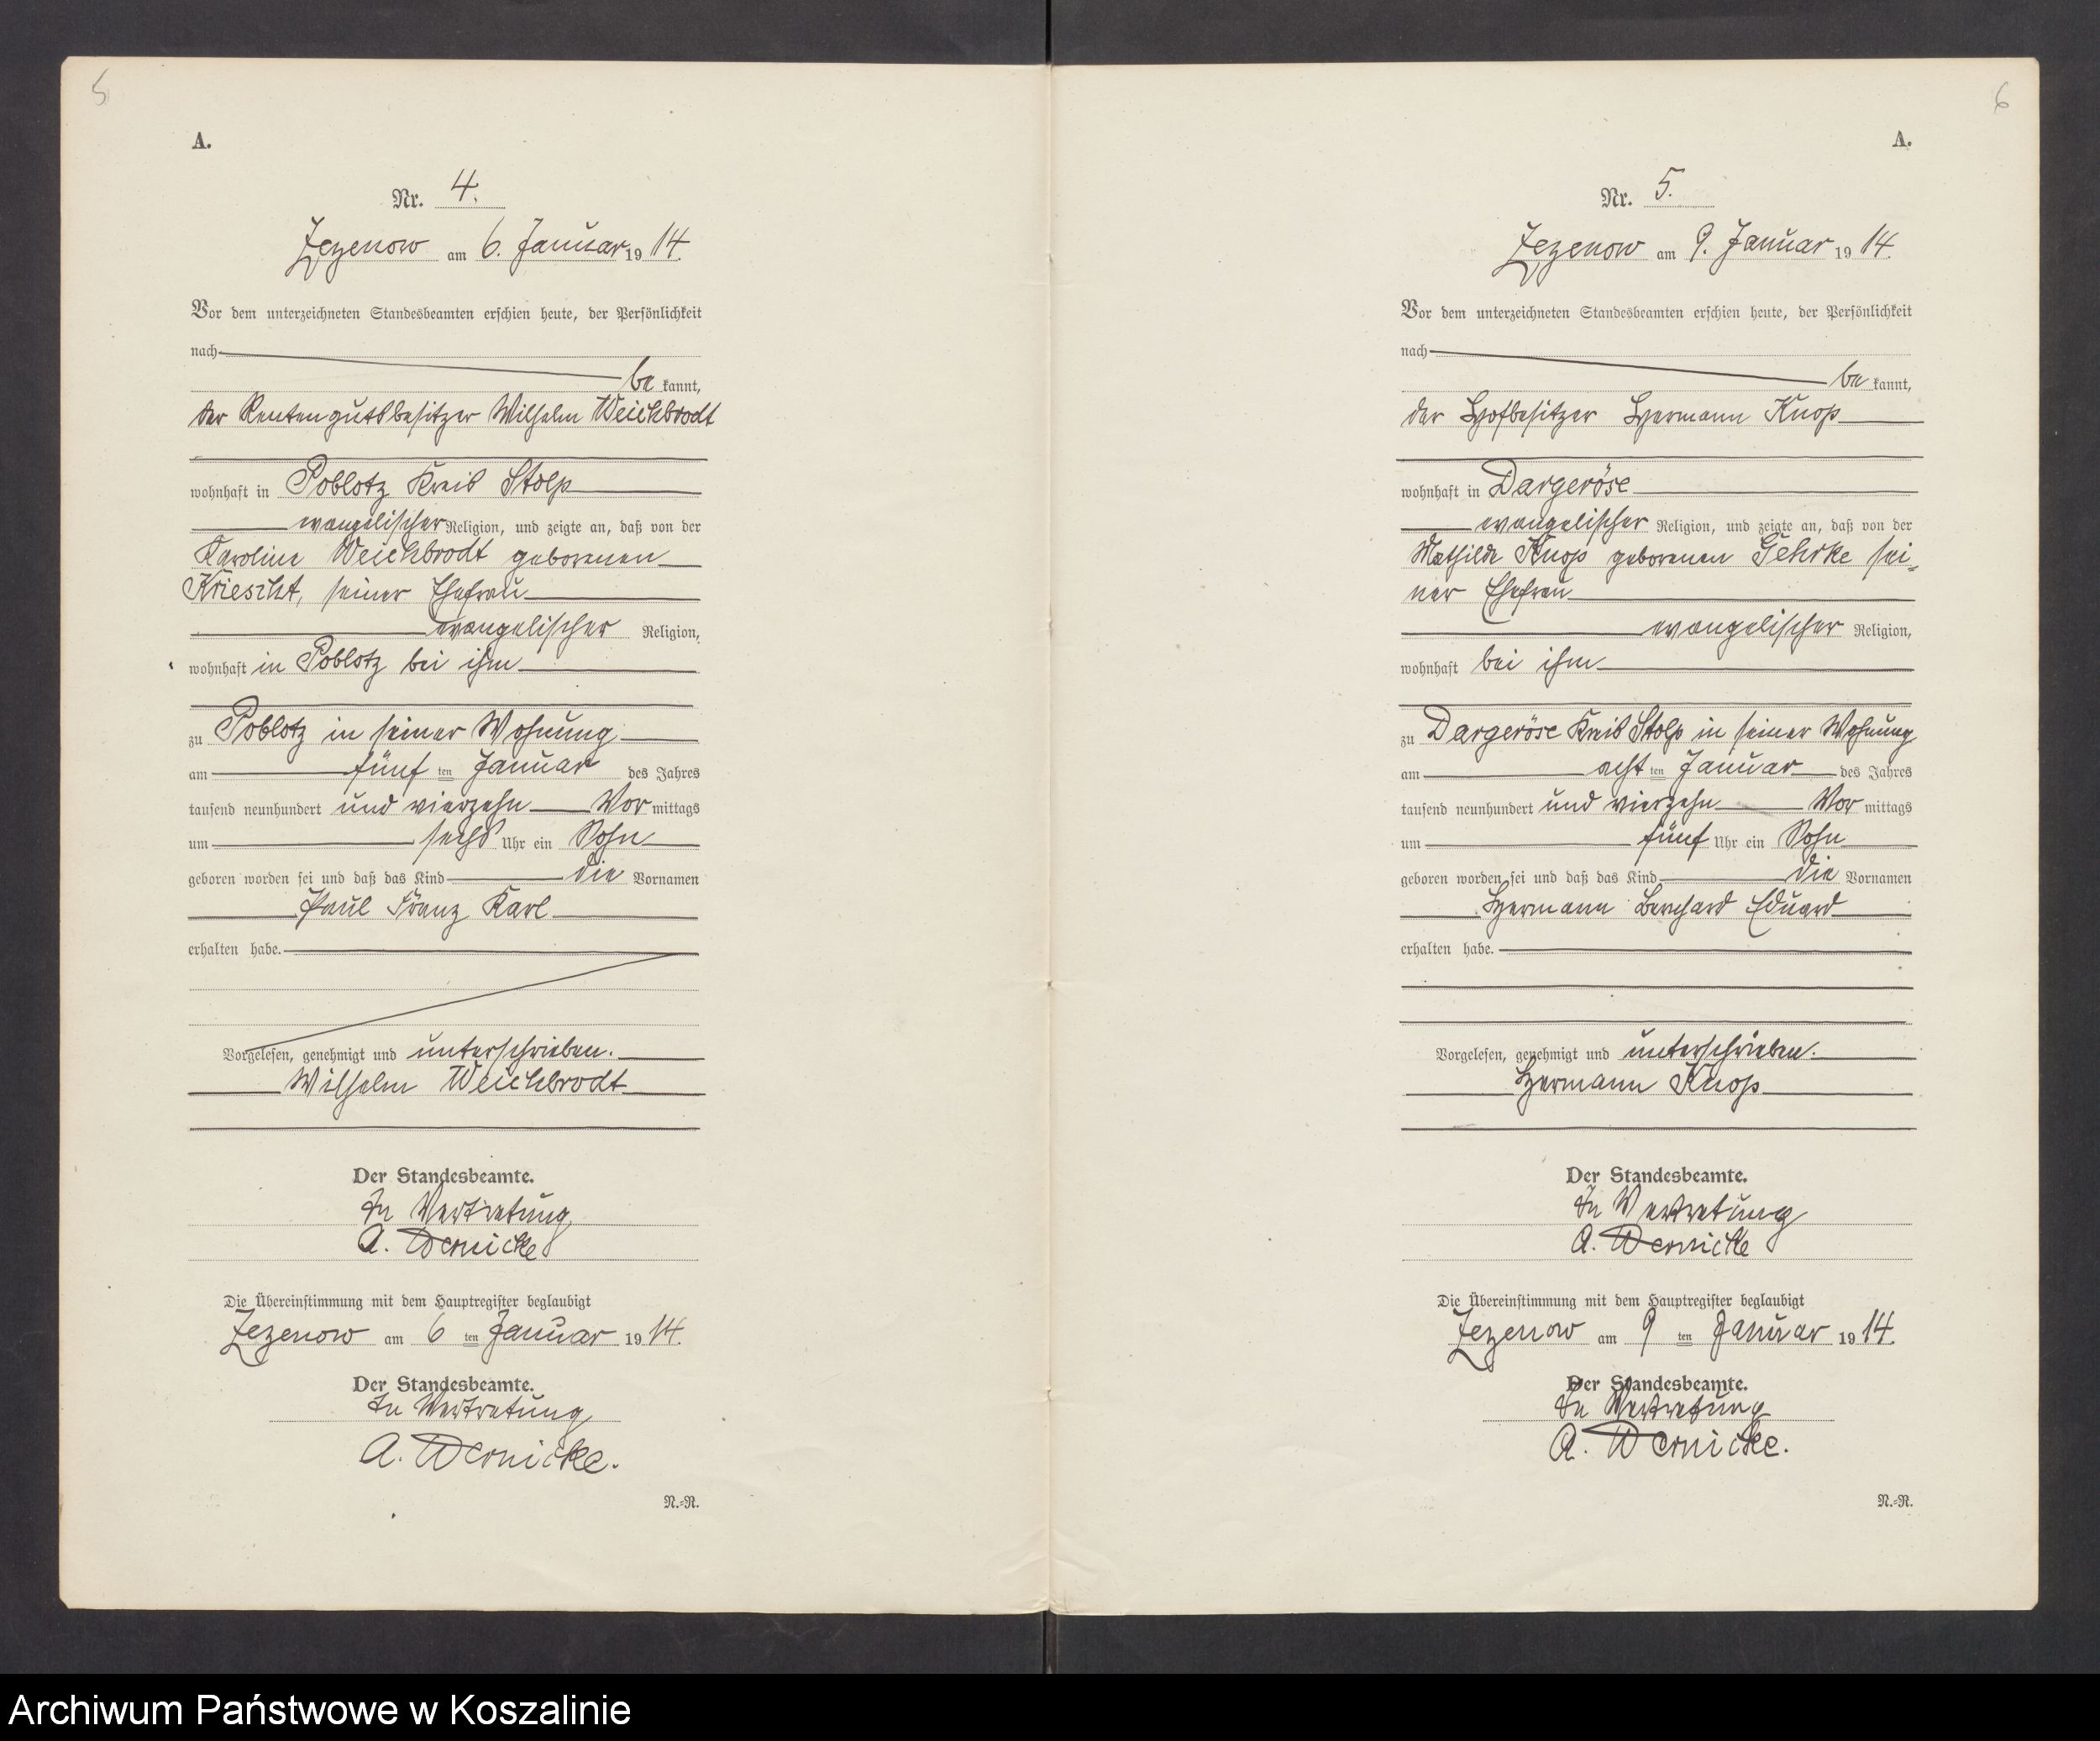 5
A.
Nr. 4.
Zezenow am 6. Januar 1914.
Vor dem unterzeichneten Standesbeamten erschien heute, der Persönlichkeit
nach
be kannt,
der Rentengutsbesitzer Wilhelm Weichbrodt
wohnhaft in Poblotz Kreis Stolp
evangelischer Religion, und zeigte an, daß von der
Karoline Weichbrodt geborenen
Kriescht, seiner Ehefrau
evangelischer Religion,
wohnhaft in Poblotz bei ihm
zu Poblotz in seiner Wohnung
am fünf ten Januar des Jahres
tausend neunhundert und vierzehn Vor mittags
um sechs Uhr ein Sohn
geboren worden sei und daß das Kind die Vornamen
Paul Franz Karl
erhalten habe.
Vorgelesen, genehmigt und unterschrieben.
Wilhelm Weichbrodt
Der Standesbeamte.
In Vertretung
A. Wernicke
Die Übereinstimmung mit dem Hauptregister beglaubigt
Zezenow am 6 ten Januar 1914.
Der Standesbeamte.
In Vertretung
A. Wernicke.
N.=R.
6
A.
Nr. 5.
Zezenow am 9. Januar 1914.
Vor dem unterzeichneten Standesbeamten erschien heute, der Persönlichkeit
nach
be kannt,
der Hofbesitzer Hermann Knop
wohnhaft in Dargeröse
evangelischer Religion, und zeigte an, daß von der
Mathilde Knop geborenen Gehrke sei=
ner Ehefrau
evangelischer Religion,
wohnhaft bei ihm
zu Dargeröse Kreis Stolp in seiner Wohnung
am acht ten Januar des Jahres
tausend neunhundert und vierzehn Vor mittags
um fünf Uhr ein Sohn
geboren worden sei und daß das Kind die Vornamen
Hermann Bernhard Eduard
erhalten habe.
Vorgelesen, genehmigt und unterschrieben.
Hermann Knop
Der Standesbeamte.
In Vertretung
A. Wernicke
Die Übereinstimmung mit dem Hauptregister beglaubigt
Zezenow am 9 ten Januar 1914.
Der Standesbeamte.
In Vertretung
A. Wernicke.
N.=R.
Archiwum Państwowe w Koszalinie